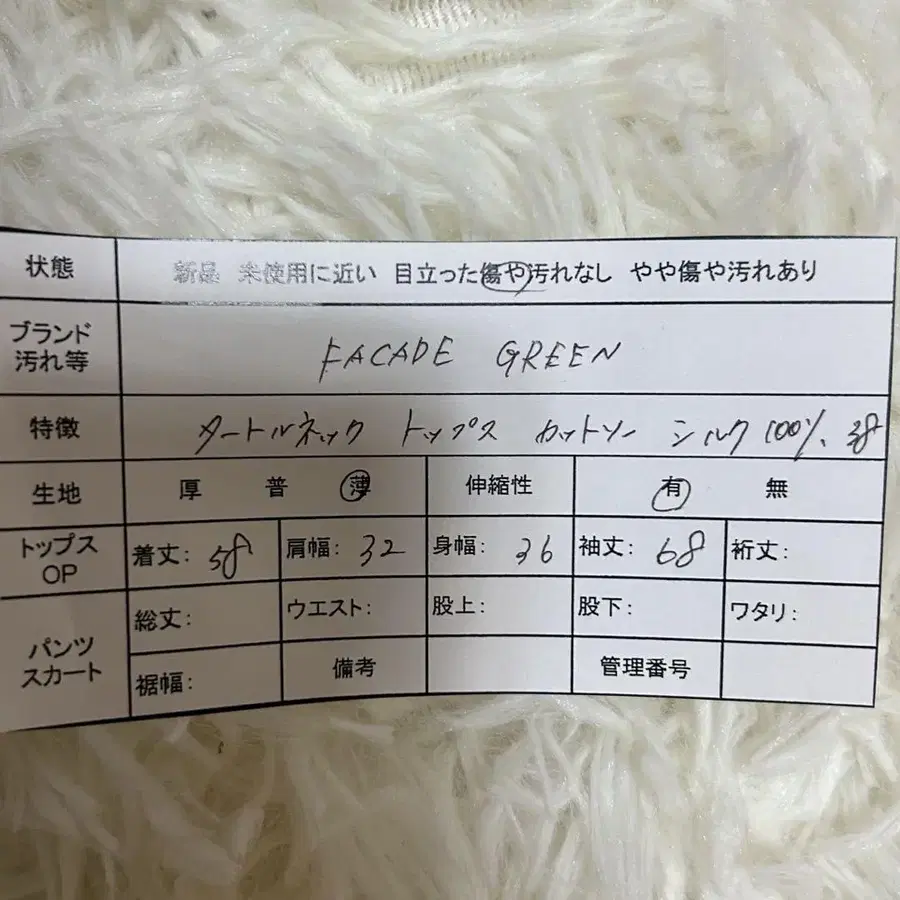 状態 新品 未使用に近い 目立った傷や汚れなし やや傷や汚れあり
ブランド
汚れ等 FACADE GREEN
特徴 タートルネック トップス カットソー シルク100%、38
生地 厚 普 薄 伸縮性 有 無
トップス
OP 着丈: 58 肩幅: 32 身幅: 36 袖丈: 68 裄丈:
パンツ
スカート 総丈: ウエスト: 股上: 股下: ワタリ:
裾幅: 備考 管理番号